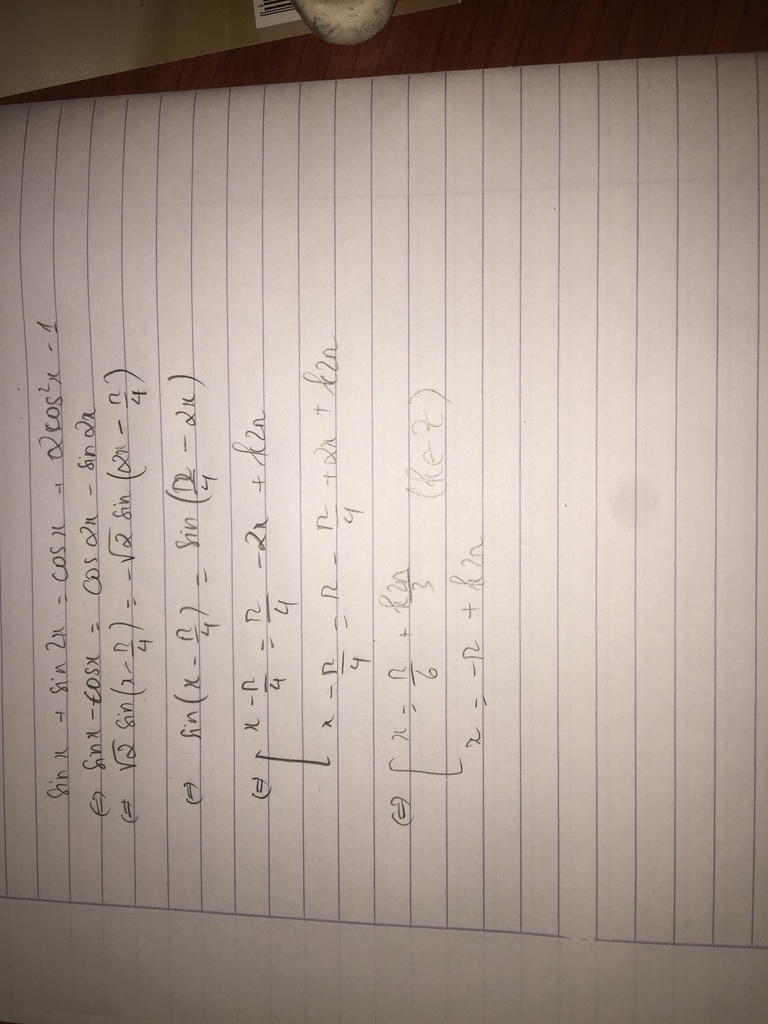 sin x + sin 2x = cos x + 2cos²x - 1
⇔ sin x - cos x = cos 2x - sin 2x
⇔ √2 sin(x - π/4) = -√2 sin(2x - π/4)
⇔ sin(x - π/4) = sin(π/4 - 2x)
⇔ [ x - π/4 = π/4 - 2x + k2π
x - π/4 = π - π/4 + 2x + k2π
⇔ [ x = π/6 + k2π/3
x = -π + k2π (k ∈ Z)